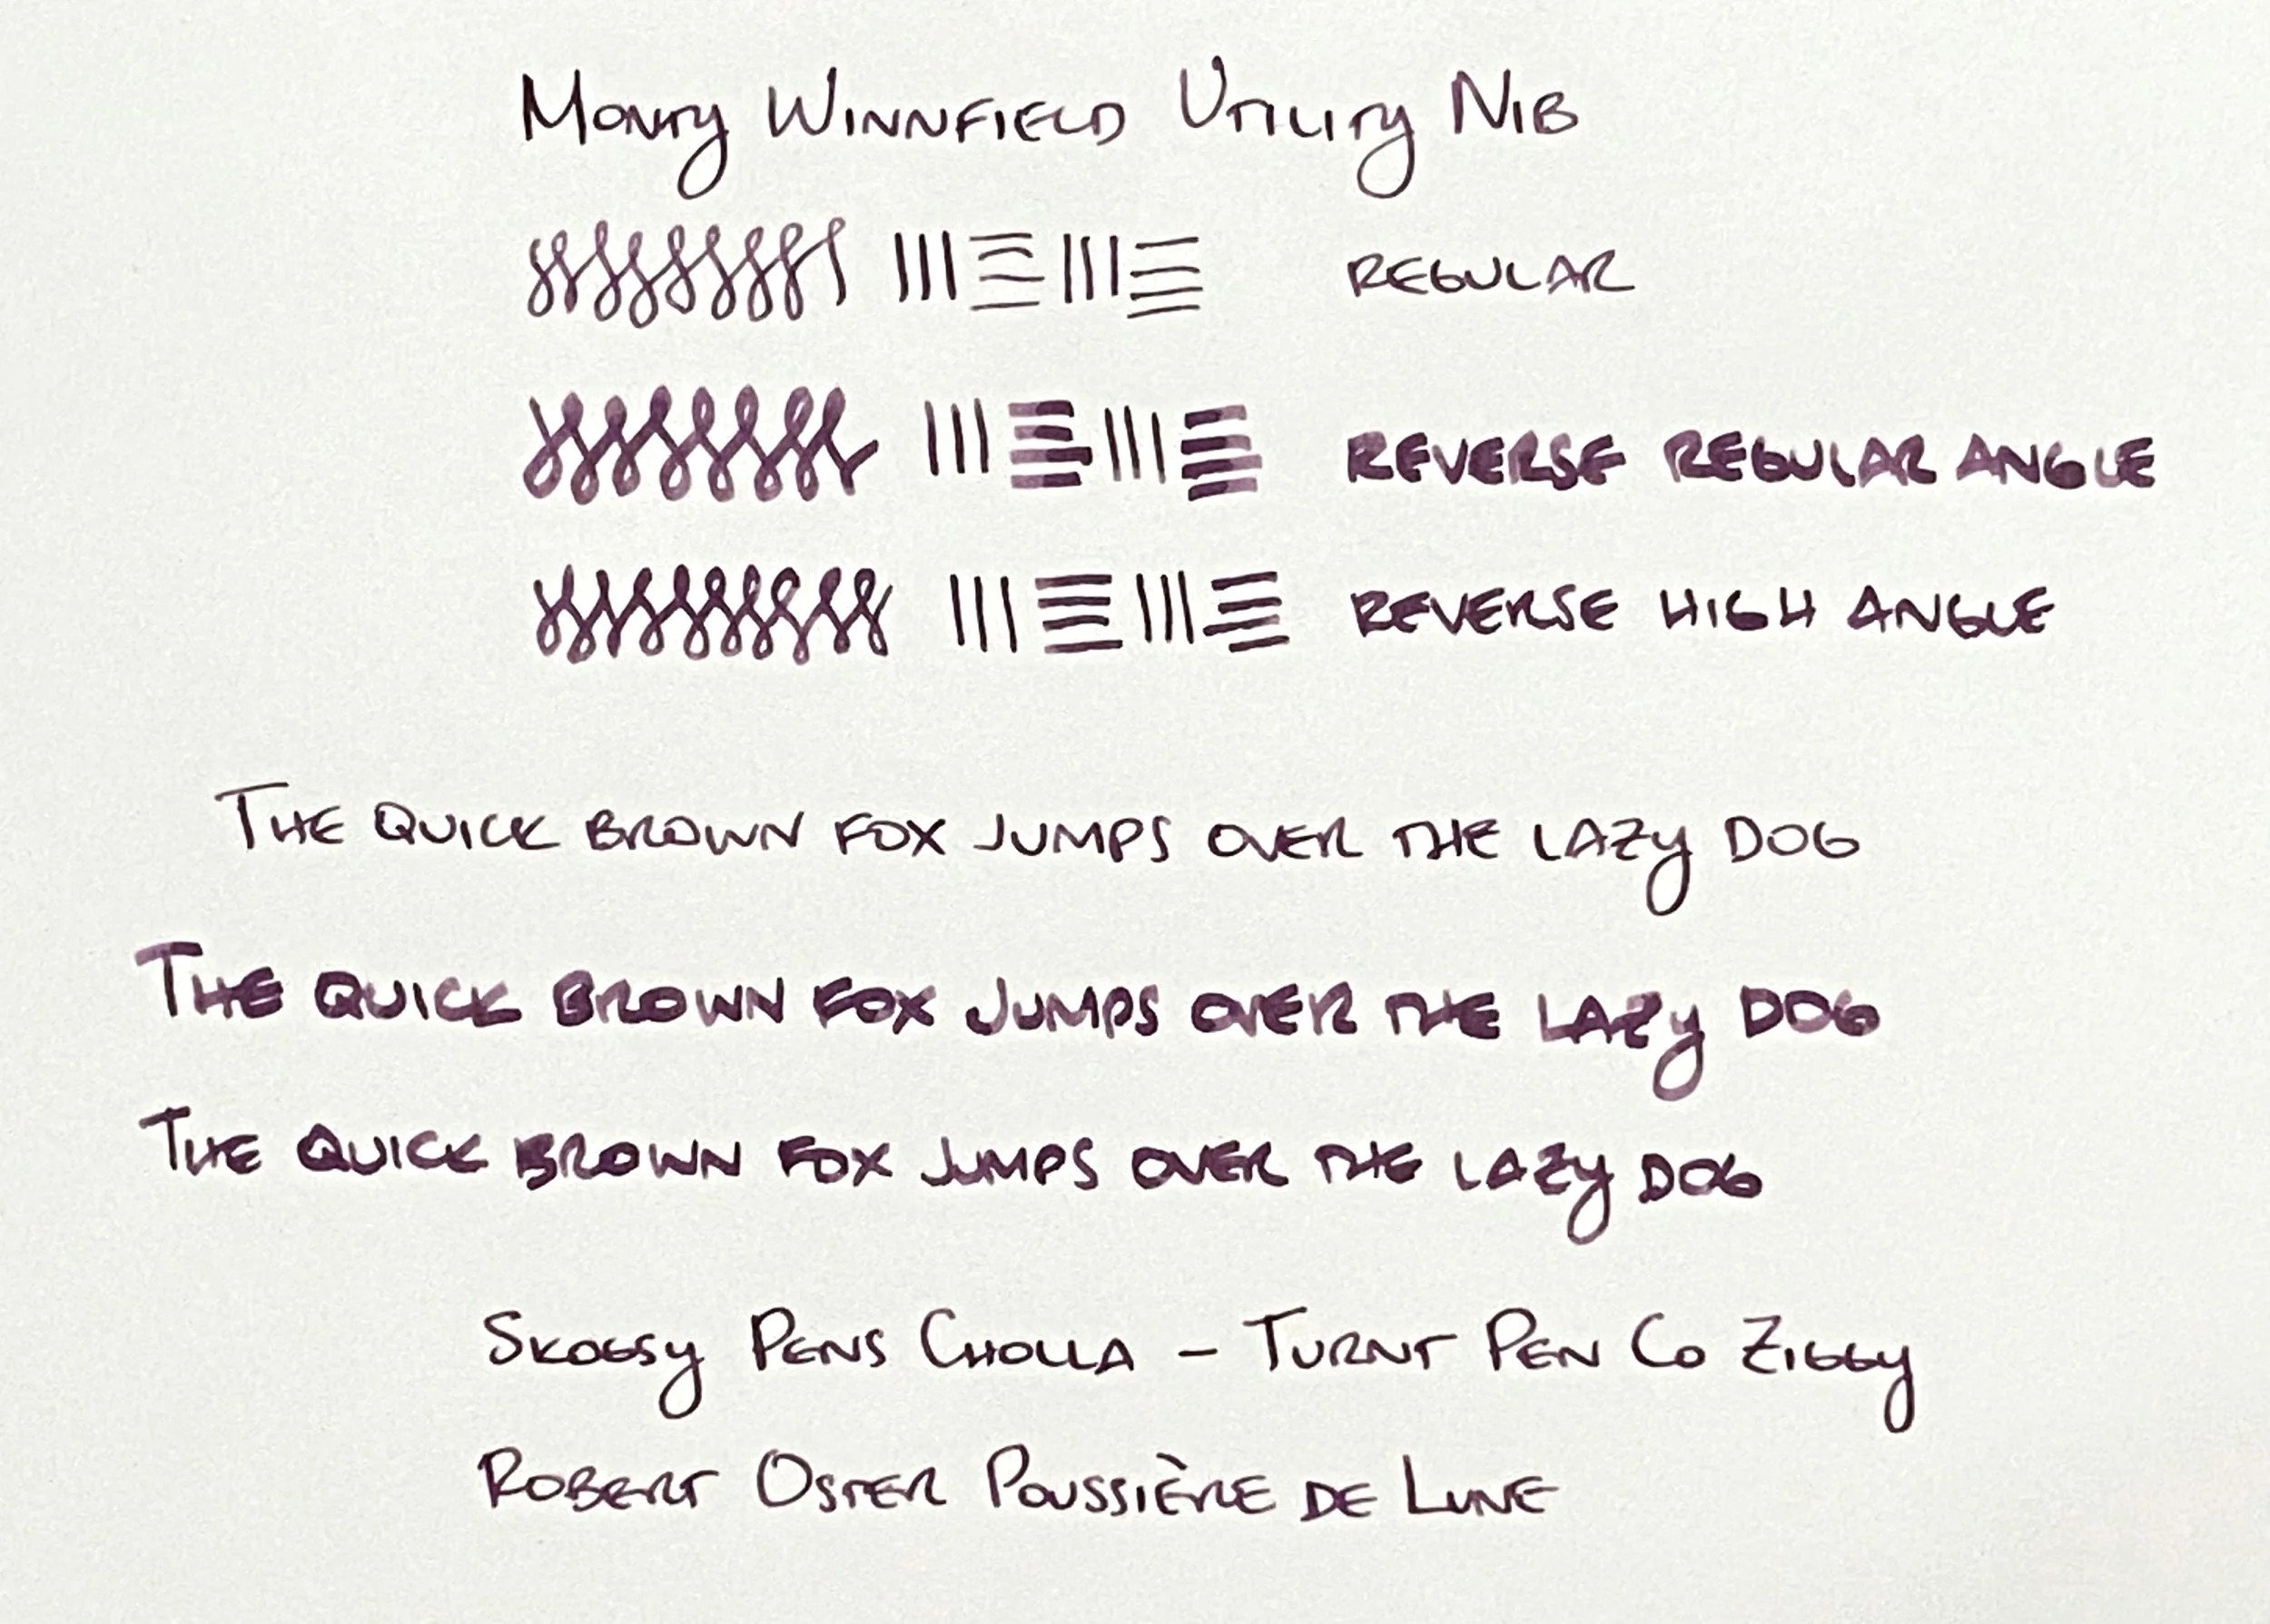 Monty Winnfield Utility Nib
Regular
Reverse Regular Angle
Reverse High Angle
The quick brown fox jumps over the lazy dog
The quick brown fox jumps over the lazy dog
The quick brown fox jumps over the lazy dog
Skogsy Pens Cholla – Turnt Pen Co Ziggy
Robert Oster Poussière de Lune